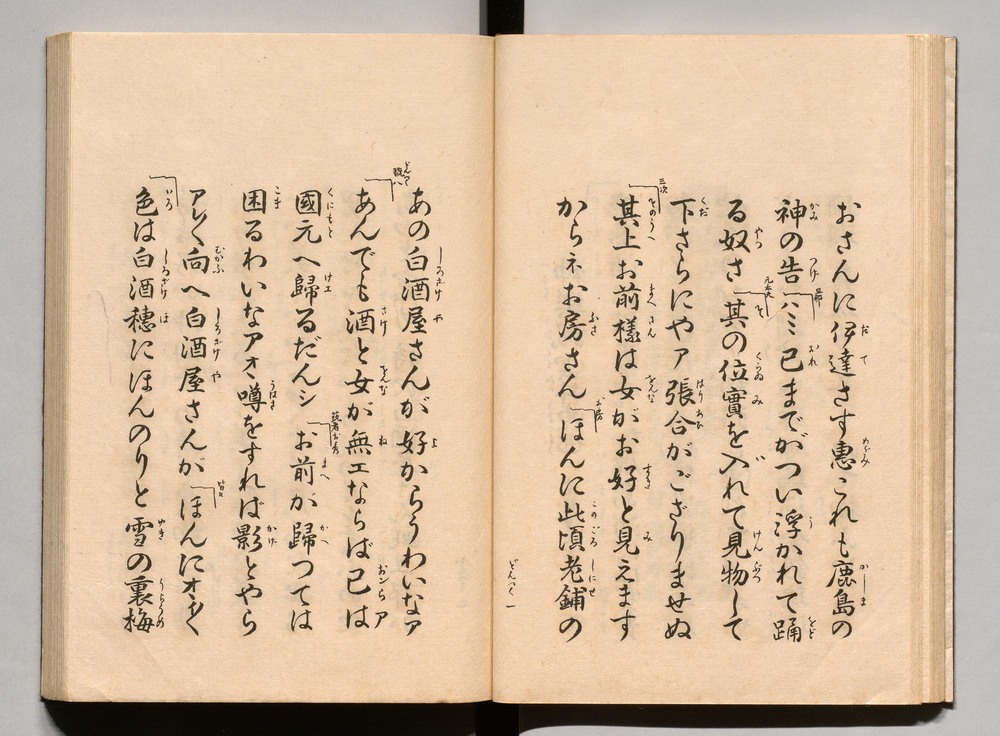 おさんに伊達さす惠これも鹿島の
神の告ハヽミ已までがつい浮かれて踊
る奴さ其の位實を入れて見物して
下さらにやア張合がござりませぬ
其上お前樣は女がお好と見えます
からネお房さんほんに此頃老舗の
どんつく 一
あの白酒屋さんが好からうわいなア
あんでも酒と女が無エならば已は
國元へ歸るだんシお前が歸つては
困るわいなアオ噂をすれば影とやら
アレ〳〵向へ白酒屋さんがほんにオヽ〳〵
色は白酒穗にほんのりと雪の裏梅